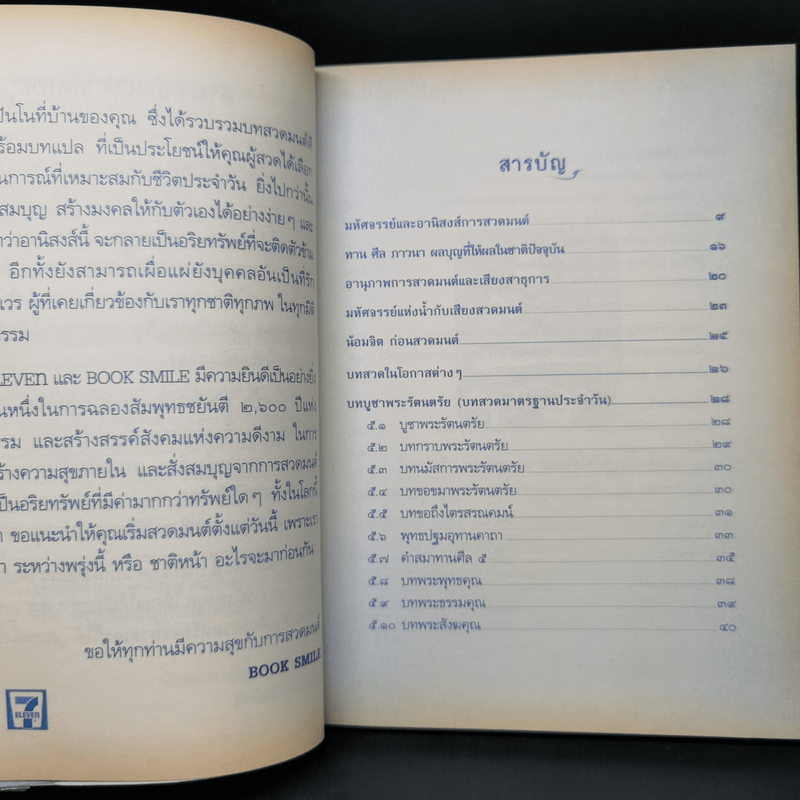 ป็นโนที่บ้านของคุณ ซึ่งได้รวบรวมบทสวดมนต์ดี
ร้อมบทแปล ที่เป็นประโยชน์ให้คุณผู้สวดได้เลือก
นการณ์ที่เหมาะสมกับชีวิตประจำวัน ยิ่งไปกว่านั้น
สมบุญ สร้างมงคลให้กับตัวเองได้อย่างง่ายๆ และ
ว่าอานิสงส์นี้ จะกลายเป็นอริยทรัพย์ที่จะติดตัวข้าม
อีกทั้งยังสามารถเผื่อแผ่ยังบุคคลอันเป็นที่รัก
เวร ผู้ที่เคยเกี่ยวข้องกับเราทุกชาติทุกภพ ในทุกมิติ
รรม
LEVEn และ BOOK SMILE มีความยินดีเป็นอย่างยิ่ง
นหนึ่งในการฉลองสัมพุทธชยันตี ๒,๖๐๐ ปีแห่ง
รรม และสร้างสรรค์สังคมแห่งความดีงาม ในการ
ร้างความสุขภายใน และสั่งสมบุญจากการสวดมนต์
ป็นอริยทรัพย์ที่มีค่ามากกว่าทรัพย์ใดๆ ทั้งในโลกนี้
ขอแนะนำให้คุณเริ่มสวดมนต์ตั้งแต่วันนี้ เพราะเรา
ระหว่างพรุ่งนี้ หรือ ชาติหน้า อะไรจะมาก่อนกัน
ขอให้ทุกท่านมีความสุขกับการสวดมนต์
BOOK SMILE
7 ELEVEn
สารบัญ
มหัศจรรย์และอานิสงส์การสวดมนต์ ๙
ทาน ศีล ภาวนา ผลบุญที่ให้ผลในชาติปัจจุบัน ๑๖
อานุภาพการสวดมนต์และเสียงสาธุการ ๒๐
มหัศจรรย์แห่งน้ำกับเสียงสวดมนต์ ๒๓
น้อมจิต ก่อนสวดมนต์ ๒๕
บทสวดในโอกาสต่างๆ ๒๖
บทบูชาพระรัตนตรัย (บทสวดมาตรฐานประจำวัน) ๒๘
๕.๑ บูชาพระรัตนตรัย ๒๘
๕.๒ บทกราบพระรัตนตรัย ๒๙
๕.๓ บทนมัสการพระรัตนตรัย ๓๐
๕.๔ บทขอขมาพระรัตนตรัย ๓๐
๕.๕ บทขอถึงไตรสรณคมน์ ๓๑
๕.๖ พุทธปฐมอุทานคาถา ๓๓
๕.๗ คำสมาทานศีล ๕ ๓๕
๕.๘ บทพระพุทธคุณ ๓๘
๕.๙ บทพระธรรมคุณ ๓๙
๕.๑๐ บทพระสังฆคุณ ๔๐